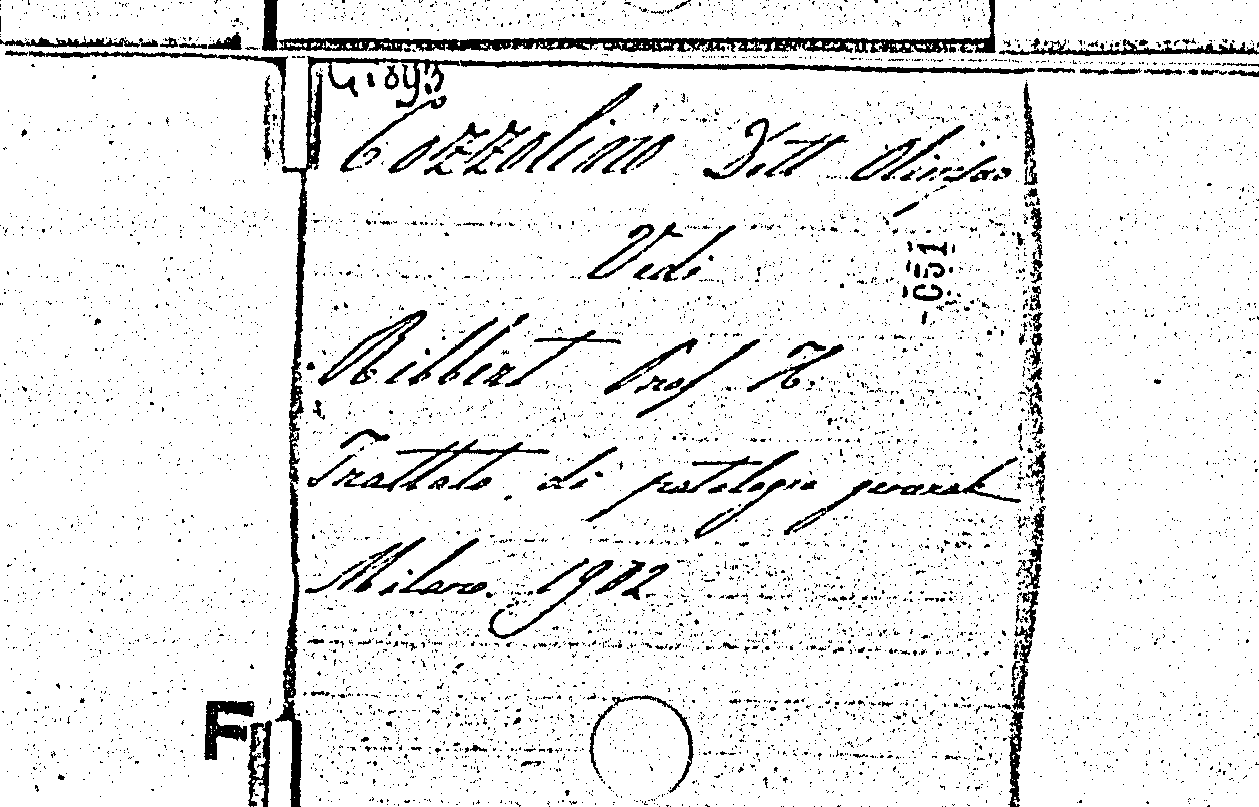 Cozzolino Dott Olimpio
Vedi
-C51
Ribbert Prof H.
Trattato di patologia generale
Milano. 1902
F